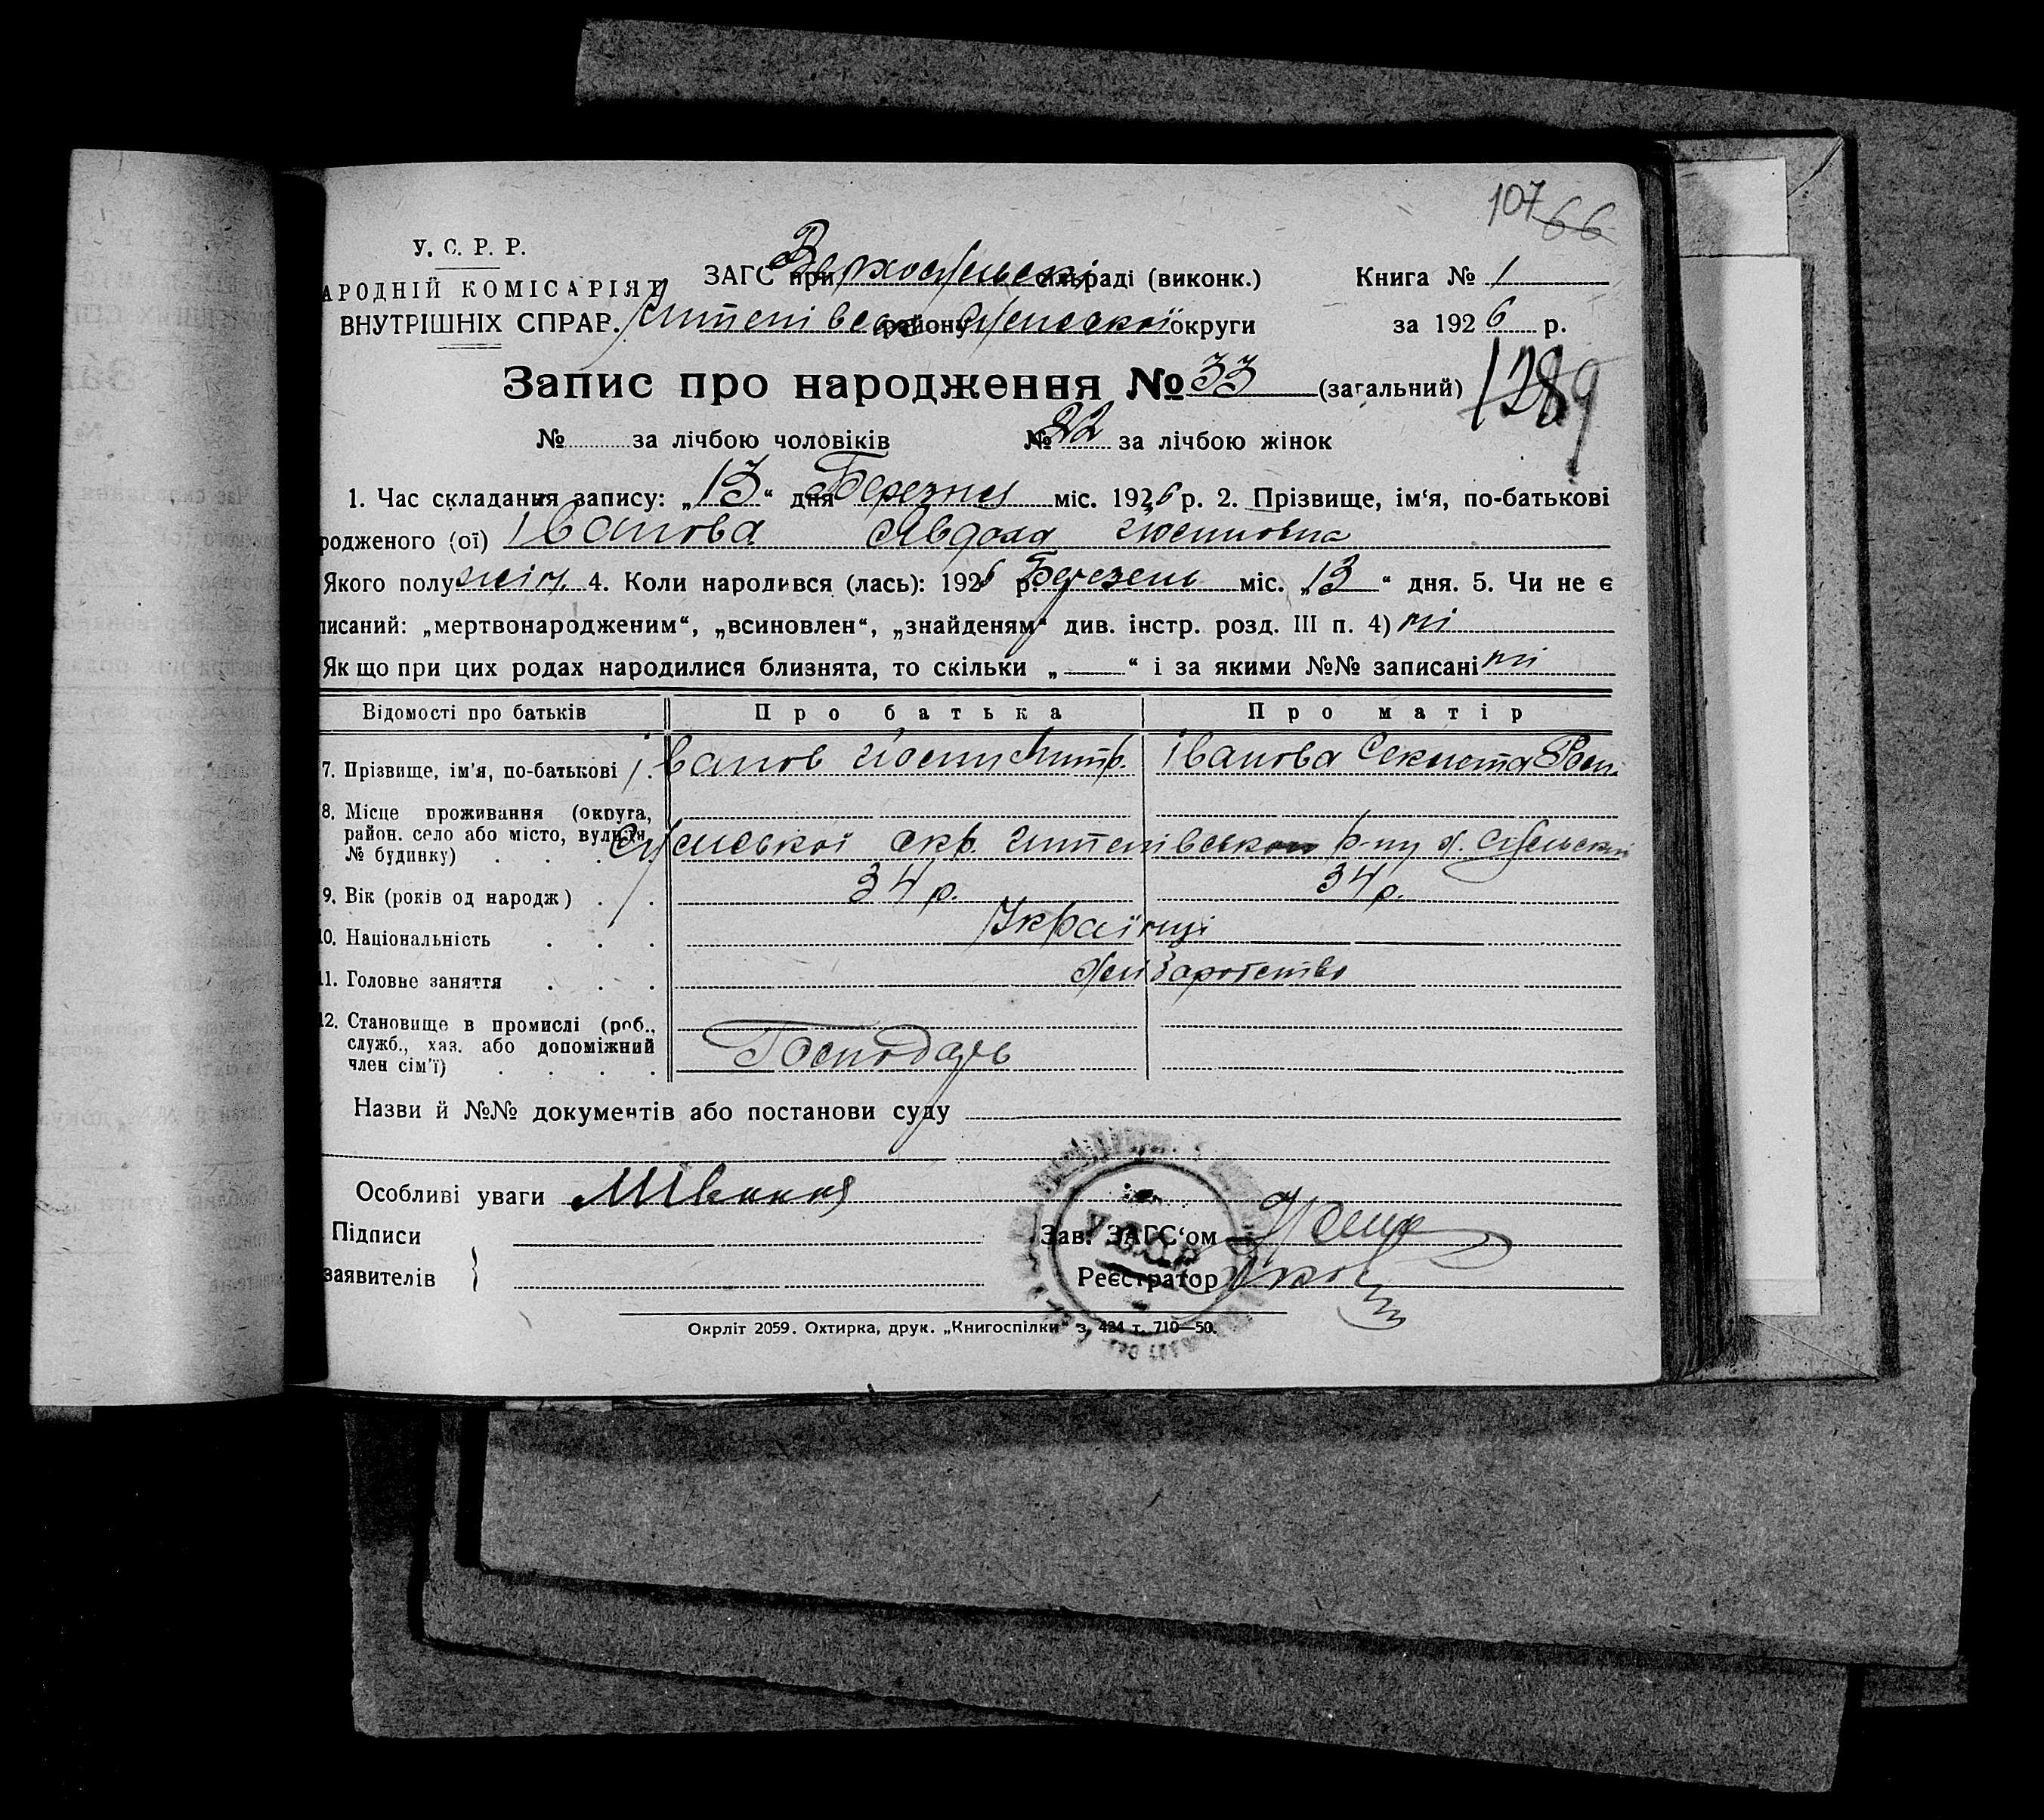 107 66
У. С. Р. Р.
АРОДНІЙ КОМІСАРІЯТ
ВНУТРІШНІХ СПРАВ.
ЗАГС при Верхосульскі сільраді (виконк.)
району Сумської округи
Книга № 1
за 1926 р.
Запис про народження № 33 (загальний)
1289
№ за лічбою чоловіків № 22 за лічбою жінок
1. Час складання запису: „13“ дня Березня міс. 1926 р. 2. Прізвище, ім‘я, по-батькові
родженого (ої) Іванова Явдоха
Якого полу жін. 4. Коли народився (лась): 1926 р. Березень міс. „13“ дня. 5. Чи не є
писаний: „мертвонародженим“, „всиновлен“, „знайденям“ див. інстр. розд. III п. 4) ні
Якщо при цих родах народилися близнята, то скільки „ “ і за якими №№ записані ні
Відомості про батьків Про батька Про матір
7. Прізвище, ім‘я, по-батькові Іванов Йосип Дмитр. Іванова Секлета
8. Місце проживання (округа,
район. село або місто, вулиця,
№ будинку)
Сумської окр. р-ну
9. Вік (років од народж) 34 р. 34 р.
10. Національність Українці
11. Головне заняття Хліборобство
12. Становище в промислі (роб.,
служб., хаз. або допоміжний
член сім‘ї)
Господарь
Назви й №№ документів або постанови суду
Особливі уваги
Підписи
заявителів
Зав. ЗАГС‘ом
Реєстратор
У.С.Р.Р.
Окрліт 2059. Охтирка, друк. „Книгоспілки“ з. 424 т. 710—50.